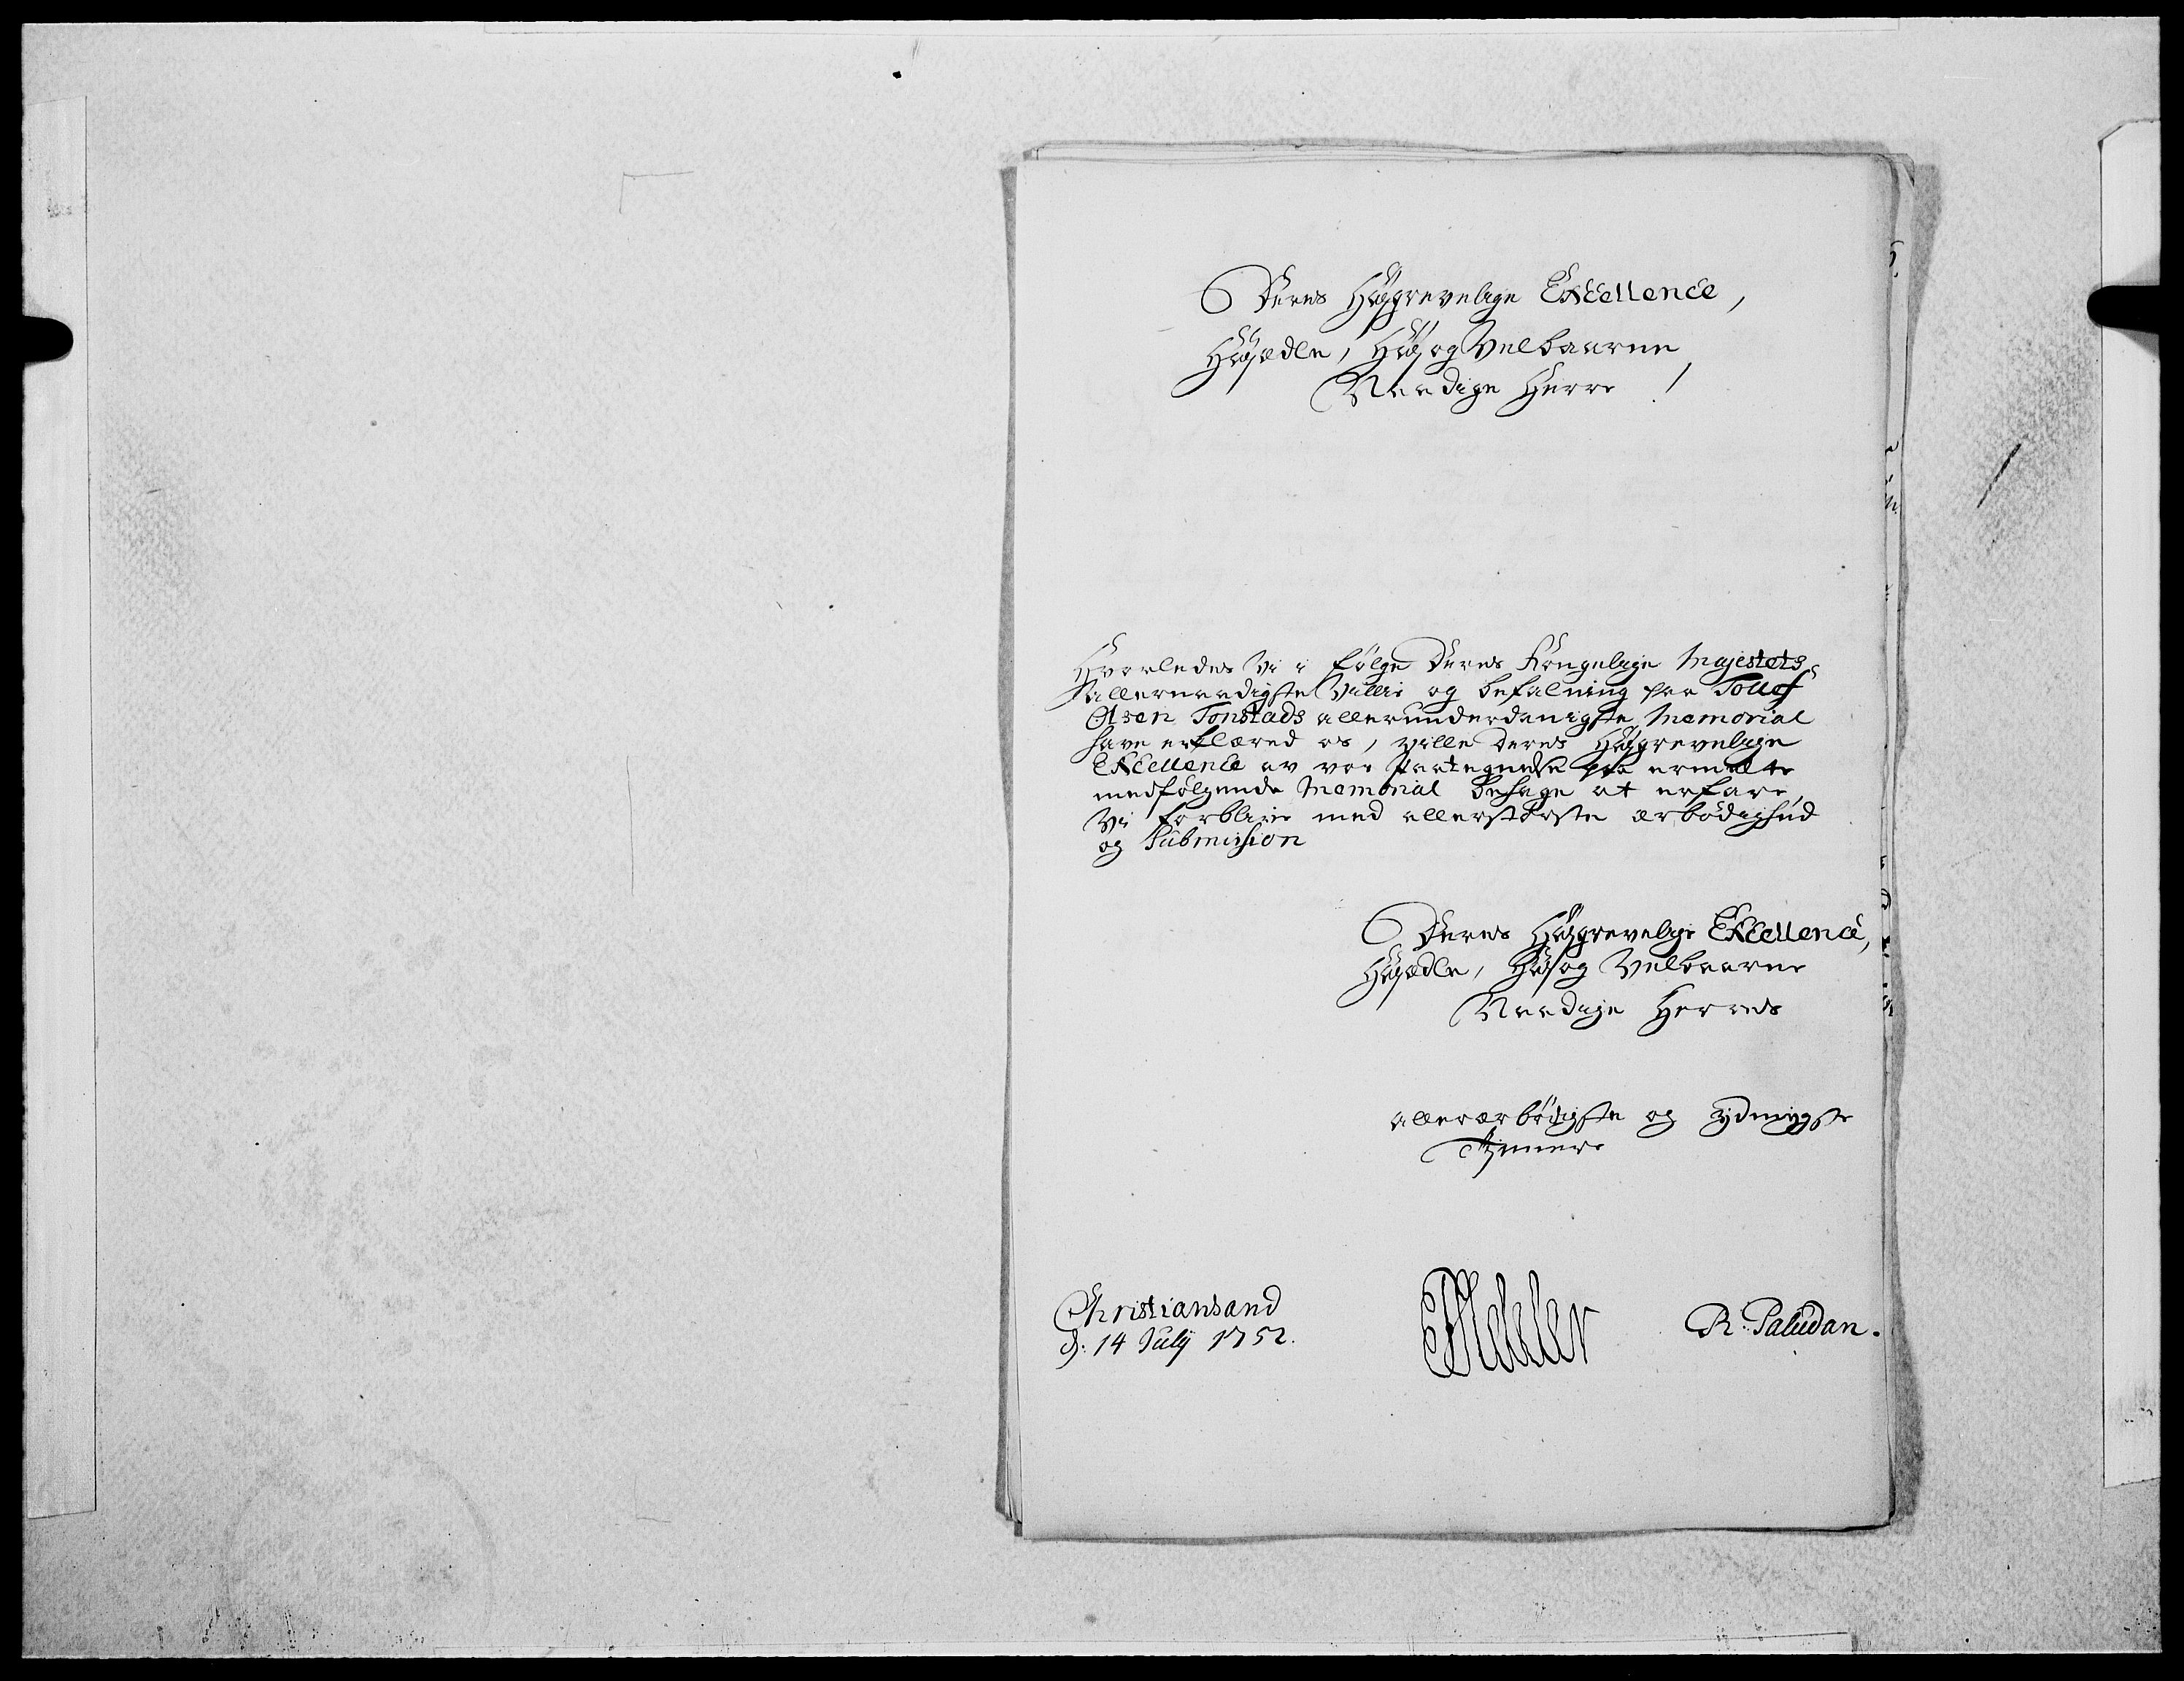 Deres Høygrevelige Excellence,
Høyædle, Høy og Velbaarne
Naadige Herre!
Hvorledes Vi i følge Deres Kongelige Majestets
allernaadigste Villie og befalning paa Tollef
Olsen Tonstads allerunderdanigste Memorial
have erklæred os, ville Deres Høygrevelige
Excellence av vor Paategnelse paa ermelte
medfølgende Memorial behage at erfare,
Vi forblive med allerstørste ærbødighed
og Submission
Deres Høygrevelige Excellence,
Høyædle, Høy og Velbaarne
Naadige Herres
allerærbødigste og ydmygste
Tienere
Christiansand
d: 14 July 1752.
R: Paludan.